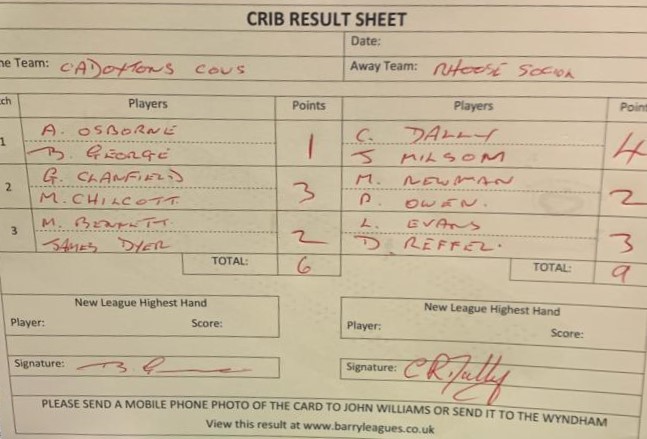 CRIB RESULT SHEET
Date:
me Team: CADOXTONS CONS Away Team: RHOOSE SOCIAL
tch Players Points Players Point
1 A. OSBORNE C. DALLY
B. GEORGE 1 J MILSOM 4
2 G. CLANFIELD M. NEWMAN
M. CHILCOTT 3 P. OWEN. 2
3 M. BENNETT. L. EVANS
JAMES DYER 2 D. REFFEL. 3
TOTAL: 6 TOTAL: 9
New League Highest Hand New League Highest Hand
Player: Score: Player: Score:
Signature: Signature:
PLEASE SEND A MOBILE PHONE PHOTO OF THE CARD TO JOHN WILLIAMS OR SEND IT TO THE WYNDHAM
View this result at www.barryleagues.co.uk